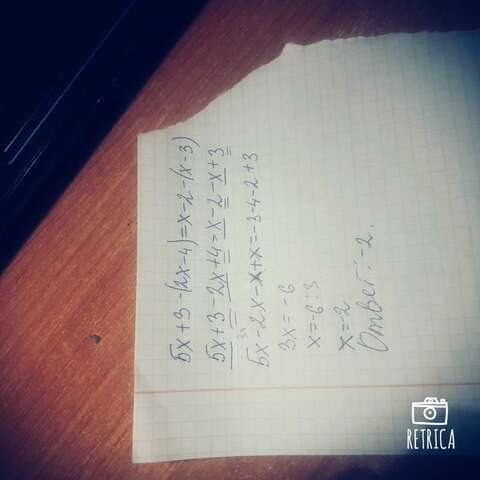 5x+3-(2x-4)=x-2-(x-3)
5x+3-2x+4=x-2-x+3
5x-2x-x+x=-3-4-2+3
3x=-6
x=-6:3
x=-2
Ответ:-2.
RETRICA